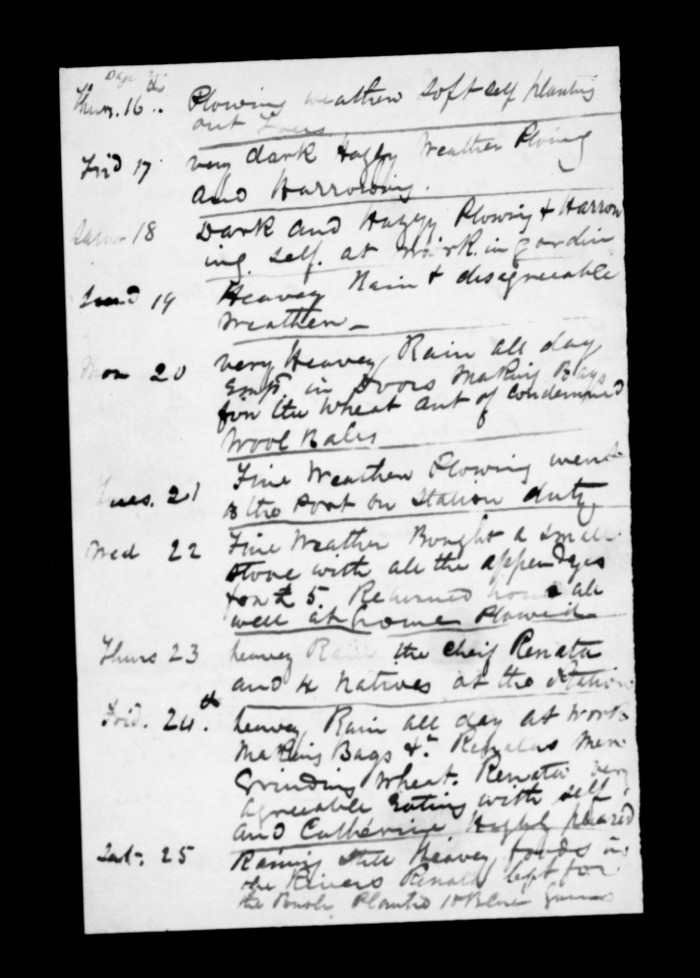 Thurs. 16th.. Plowing weather soft self planting
out Trees
Frid 17 very dark Hazey Weather Ploing
and Harrowing.
Satur 18 Dark and Hazyy Plowing & Harrow
ing. self. at Work. in gardin
Sund 19 Heavey Rain & disagreeable
Weather —
Mon 20 very Heavey Rain all day
Empd in Doors Making Bags
for the Wheat out of Condemned
Wool Bales
Tues. 21 Fine Weather Plowing went
to the Port on Station duty
Wed 22 Fine Weather Bought a small
stove with all the appendages
for £ 5. Returned home all
well at home Plowed
Thurs 23 heavey Rain the Cheif Renata
and 4 Natives at the Station
Frid. 24.th heavey Rain all day at Work
Making Bags &c Renatas Men
Grinding Wheat. Renata very
agreeable Eating with self
and Catherine Highly pleased
Sat. 25 Raining still Heavey floods in
the Rivers Renata left for
the Bush. Planted 10 Blue Gums